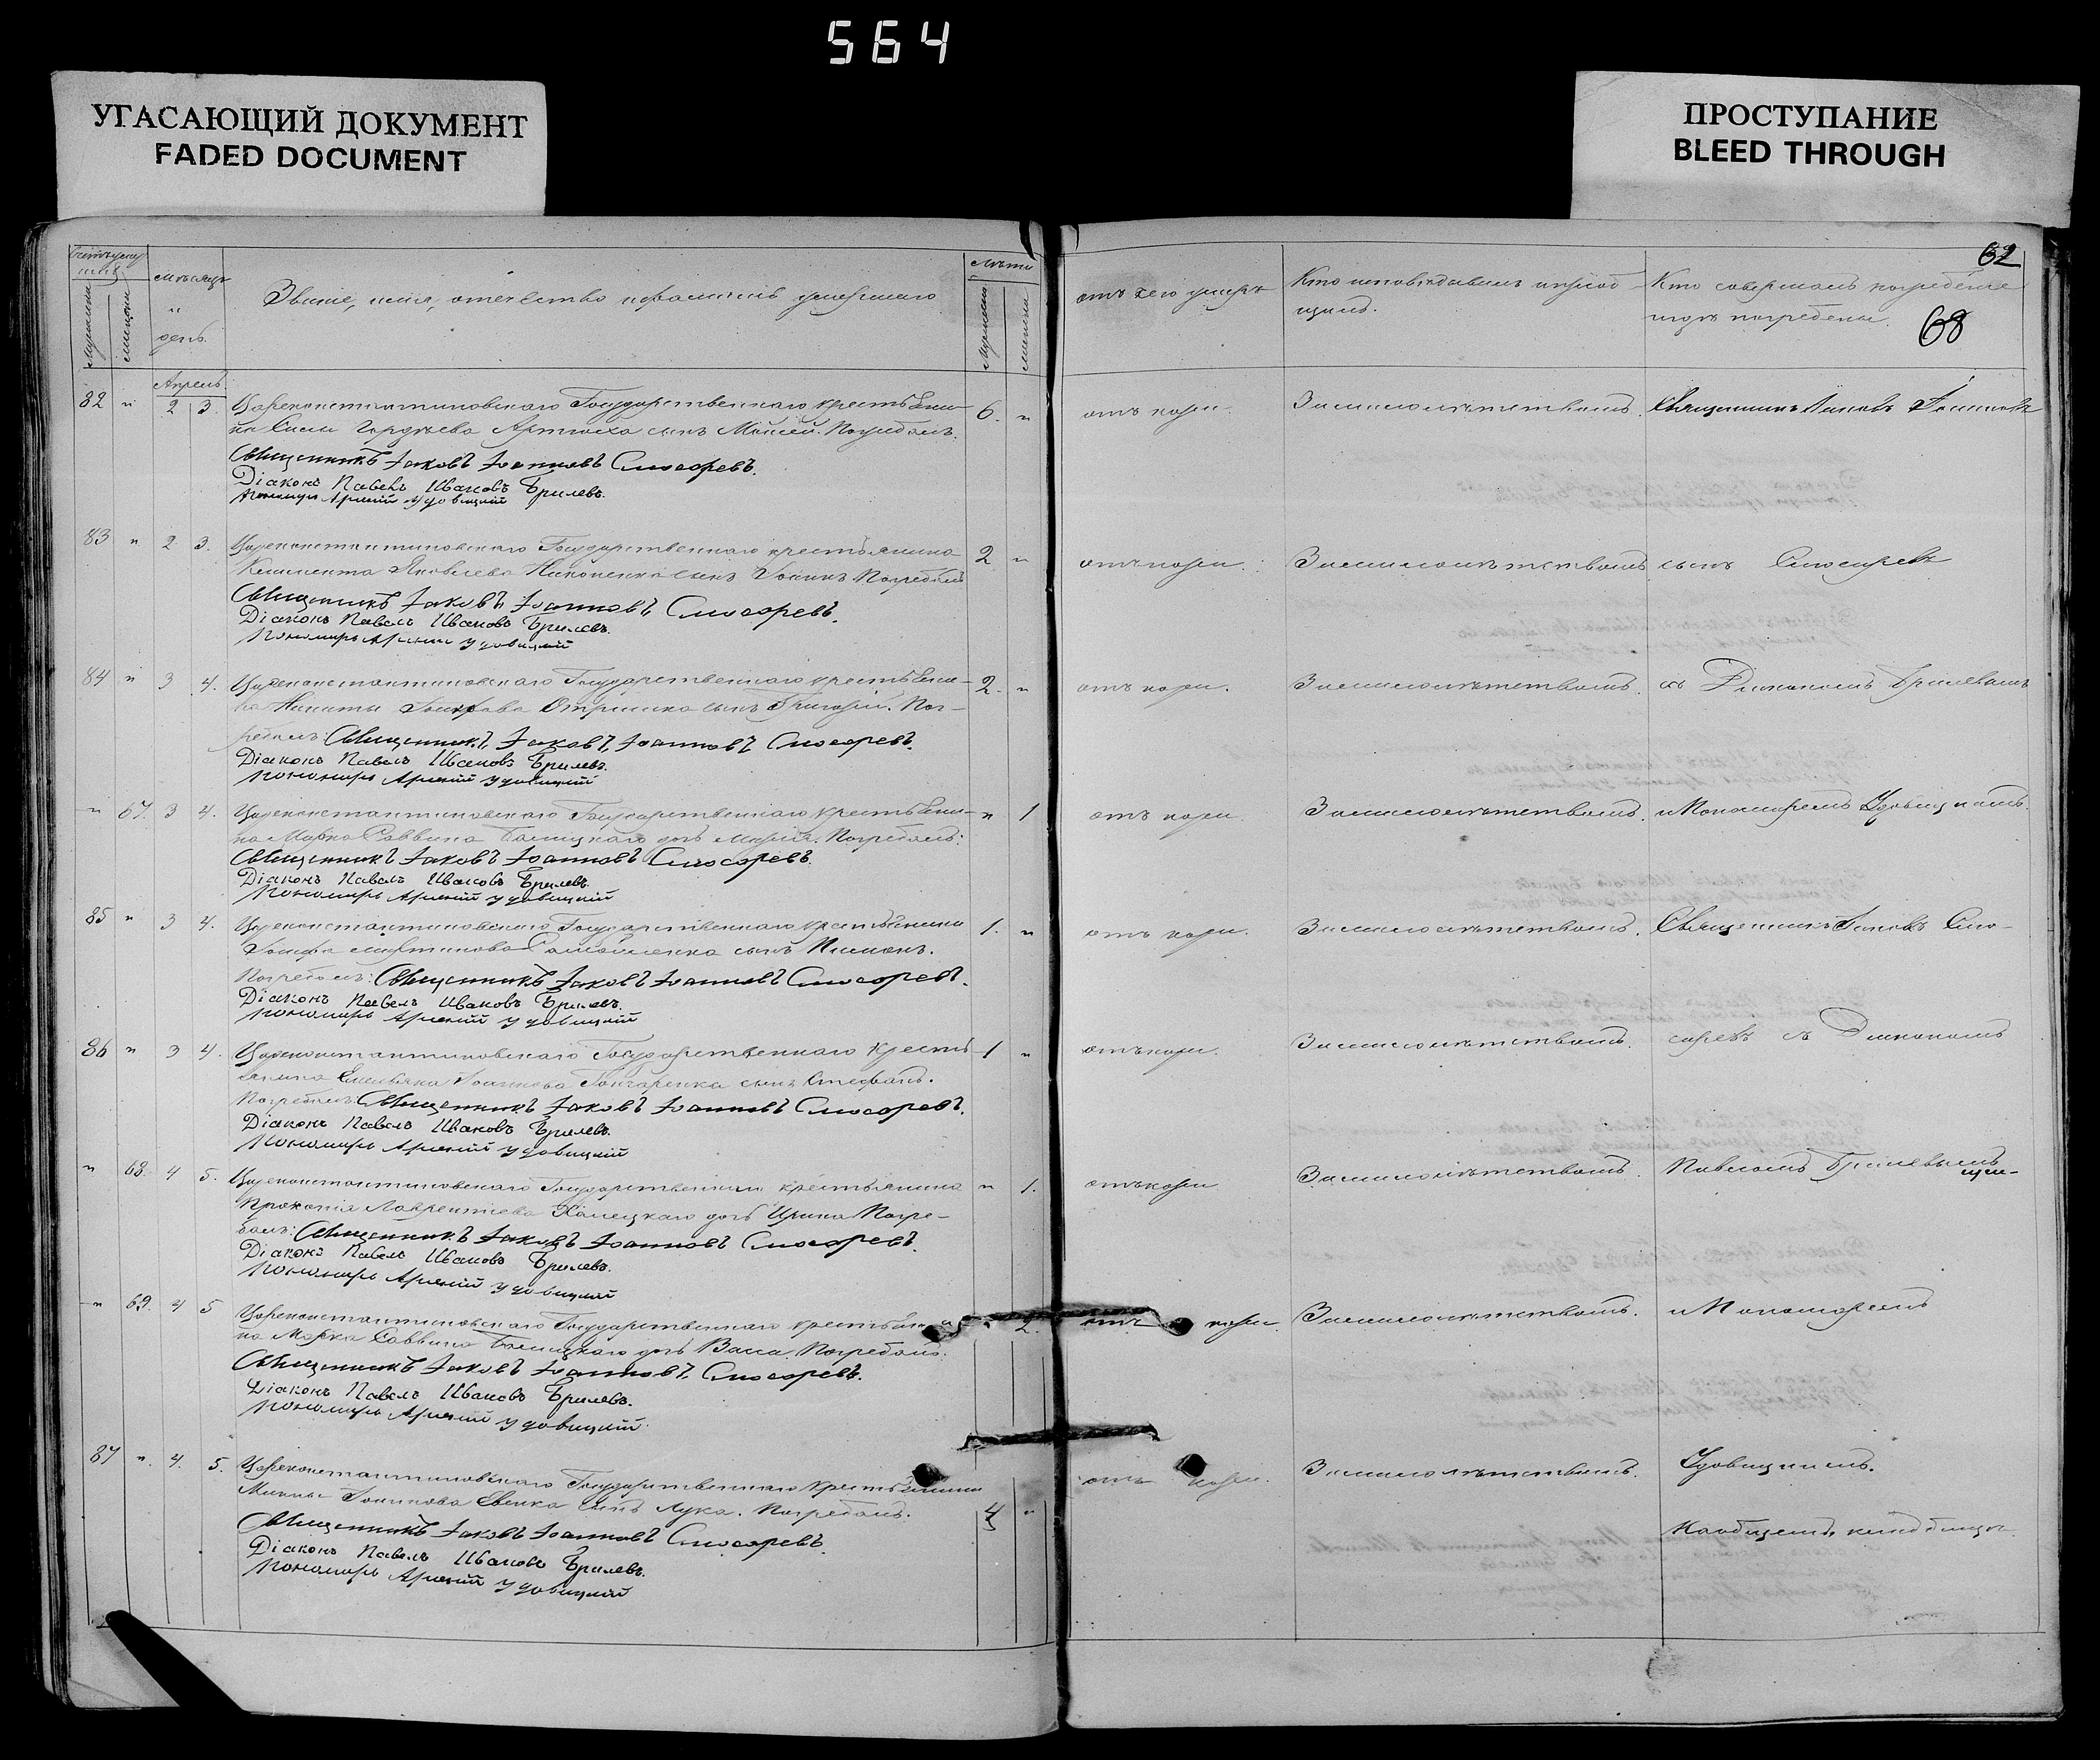 564
УГАСАЮЩИЙ ДОКУМЕНТ
FADED DOCUMENT
ПРОСТУПАНИЕ
BLEED THROUGH
62
68
Мѣсяцъ
и
день.
Званіе, имя, отечество и фамилія умершаго
Лѣта
Отъ чего умеръ
Кто исповѣдывалъ и пріоб-
щалъ.
Кто совершалъ погребеніе
и гдѣ погребены.
Апрель
82 " 2 3. Цареконстантиновскаго Государственнаго крестьяни- 6. "
на Сысы Гордѣева Артюха сынъ Моисей. Погребалъ:
Священникъ Іаковъ Іоанновъ Слюсаревъ.
Діаконъ Павелъ Ивановъ Брилевъ.
Пономарь Арсеній Удовицкій
отъ кори. За малолѣтствомъ. Священникъ Іаковъ Іоанновъ
83 " 2 3. Цареконстантиновскаго Государственнаго крестьянина 2 "
Климента Яковлева Никоненка сынъ Іоаннъ Погребалъ
Священникъ Іаковъ Іоанновъ Слюсаревъ.
Діаконъ Павелъ Ивановъ Брилевъ.
Пономарь Арсеній Удовицкій
отъ кори. За малолѣтствомъ Слюсаревъ
84 " 3 4. Цареконстантиновскаго Государственнаго крестьяни- 2. "
на Никиты сынъ Григорій. Пог-
ребалъ: Священникъ Іаковъ Іоанновъ Слюсаревъ.
Діаконъ Павелъ Ивановъ Брилевъ.
Пономарь Арсеній Удовицкій
отъ кори. За малолѣтствомъ. съ Діакономъ Брилевымъ
" 67. 3 4. Цареконстантиновскаго Государственнаго крестьяни- " 1
на Марка Саввина дочь Марія. Погребалъ:
Священникъ Іаковъ Іоанновъ Слюсаревъ.
Діаконъ Павелъ Ивановъ Брилевъ.
Пономарь Арсеній Удовицкій
отъ кори. За малолѣтствомъ. и Пономаремъ Удовицкимъ.
85 " 3 4. Цареконстантиновскаго Государственнаго крестьянина 1. "
сынъ Пименъ.
Погребалъ: Священникъ Іаковъ Іоанновъ Слюсаревъ.
Діаконъ Павелъ Ивановъ Брилевъ.
Пономарь Арсеній Удовицкій
отъ кори. За малолѣтствомъ. Священникъ Іаковъ Слю-
86 " 3 4. Цареконстантиновскаго Государственнаго кресть- 1 "
янина Емельяна Іоаннова Гончаренка сынъ Стефанъ.
Погребалъ: Священникъ Іаковъ Іоанновъ Слюсаревъ.
Діаконъ Павелъ Ивановъ Брилевъ.
Пономарь Арсеній Удовицкій
отъ кори. За малолѣтствомъ. саревъ съ Діакономъ
" 68. 4 5. Цареконстантиновскаго Государственнаго крестьянина " 1.
Прокопія Лаврентіева дочь Ирина Погре-
балъ: Священникъ Іаковъ Іоанновъ Слюсаревъ.
Діаконъ Павелъ Ивановъ Брилевъ.
Пономарь Арсеній Удовицкій
отъ кори За малолѣтствомъ. Павломъ Брилевымъ
" 69. 4 5 Цареконстантиновскаго Государственнаго крестьяни- 2.
на Марка Саввина дочь Васса. Погребалъ:
Священникъ Іаковъ Іоанновъ Слюсаревъ.
Діаконъ Павелъ Ивановъ Брилевъ.
Пономарь Арсеній Удовицкій.
отъ кори. За малолѣтствомъ. и Пономаремъ
87 " 4. 5. Цареконстантиновскаго Государственнаго крестьянина 4 "
Мины Іоаннова сынъ Лука. Погребалъ:
Священникъ Іаковъ Іоанновъ Слюсаревъ.
Діаконъ Павелъ Ивановъ Брилевъ.
Пономарь Арсеній Удовицкій
отъ кори. За малолѣтствомъ. Удовицкимъ.
На общемъ кладбищѣ.